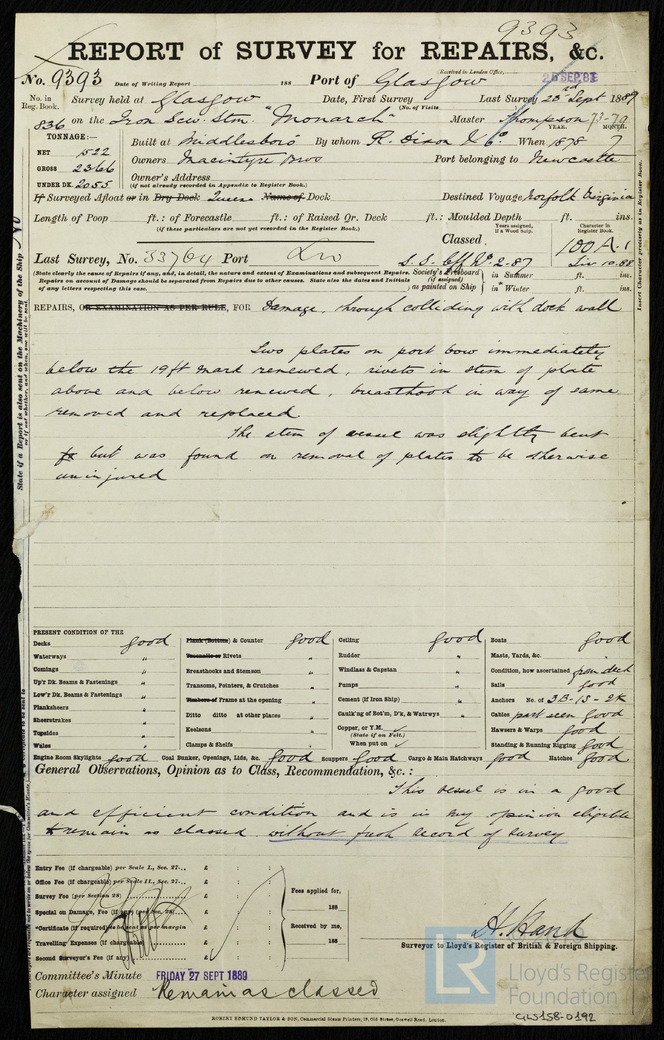 9393
REPORT of SURVEY for REPAIRS, &c.
No. 9393 Date of Writing Report 188 Port of Glasgow Received in London Office, 26 SEP. 89
No. in Reg. Book. Survey held at Glasgow Date, First Survey Last Survey 23rd Sept 1889
(No. of Visits
836 on the Iron Scw. Stm. "Monarch" Master Thompson YEAR. MONTH.
TONNAGE:—
NET 1522 Built at Middlesboro By whom R. Dixon & Co. When 1878 7
GROSS 2366 Owners Macintyre Bros Port belonging to Newcastle
UNDER DK. 2055 Owner's Address
(if not already recorded in Appendix to Register Book.)
If Surveyed Afloat or in Dry Dock Name of Dock Destined Voyage Norfolk Virginia
Length of Poop ft.: of Forecastle ft.: of Raised Qr. Deck ft.: Moulded Depth ft. ins.
(if these particulars are not yet recorded in the Register Book.)
Years assigned, if a Wood Ship. Character in Register Book.
Classed 100 A.1
Last Survey, No. 33764 Port Liv S. S. Liv 10.88
(State clearly the cause of Repairs if any, and, in detail, the nature and extent of Examinations and subsequent Repairs.
Repairs on account of Damage should be separated from Repairs due to other causes. State also the dates and initials
of any letters respecting this case.
Society's Freeboard (if assigned) as painted on Ship in Summer ft. ins.
in Winter ft. ins.
REPAIRS, OR EXAMINATION AS PER RULE, FOR Damage, through colliding with dock wall
Two plates on port bow immediately
below the 19ft mark renewed, rivets in stem of plate
above and below renewed, breasthook in way of same
removed and replaced
The stem of vessel was slightly bent
but was found on removal of plates to be otherwise
uninjured
PRESENT CONDITION OF THE
Decks good
Waterways "
Comings "
Up'r Dk. Beams & Fastenings "
Low'r Dk. Beams & Fastenings "
Planksheers "
Sheerstrakes "
Topsides "
Wales "
Plank (Bottom) & Counter good
Treenails or Rivets "
Breasthooks and Stemson "
Transoms, Pointers, & Crutches "
Timbers of Frame at the opening "
Ditto ditto at other places "
Keelsons "
Clamps & Shelfs "
Ceiling good
Rudder "
Windlass & Capstan "
Pumps "
Cement (if Iron Ship) "
Caulk'ng of Bot'm, D'k, & Watrwys "
Copper, or Y.M.
(State if on Felt.)
When put on
Boats good
Masts, Yards, &c.
Condition, how ascertained from deck
Sails good
Anchors No. of 3B-1S-2K
Cables part seen good
Hawsers & Warps good
Standing & Running Rigging good
Engine Room Skylights good Coal Bunker, Openings, Lids, &c. good Scuppers good Cargo & Main Hatchways good Hatches good
General Observations, Opinion as to Class, Recommendation, &c. :
This vessel is in a good
and efficient condition and is in my opinion eligible
to remain as classed without fresh record of survey
Entry Fee (if chargeable) per Scale I., Sec. 27... £ : :
Office Fee (if chargeable) per Scale II., Sec. 27... £ : :
Survey Fee (per Section 28) £ : :
Special on Damage, Fee (if any) (per Sec. 28) £ : :
*Certificate (if required) to be sent as per margin £ : :
Travelling Expenses (if chargeable) £ : :
Second Surveyor's Fee (if any) £ : :
Fees applied for,
188
Received by me,
188
H. Hank
Surveyor to Lloyd's Register of British & Foreign Shipping.
Committee's Minute FRIDAY 27 SEPT 1889
Character assigned Remain as classed
ROBERT EDMUND TAYLOR & SON, Commercial Steam Printers, 19, Old Street, Goswell Road, London.
LR Lloyd's Register Foundation
GLS158-0192
State if a Report is also sent on the Machinery of the Ship No
Insert Character precisely as in Register Book.